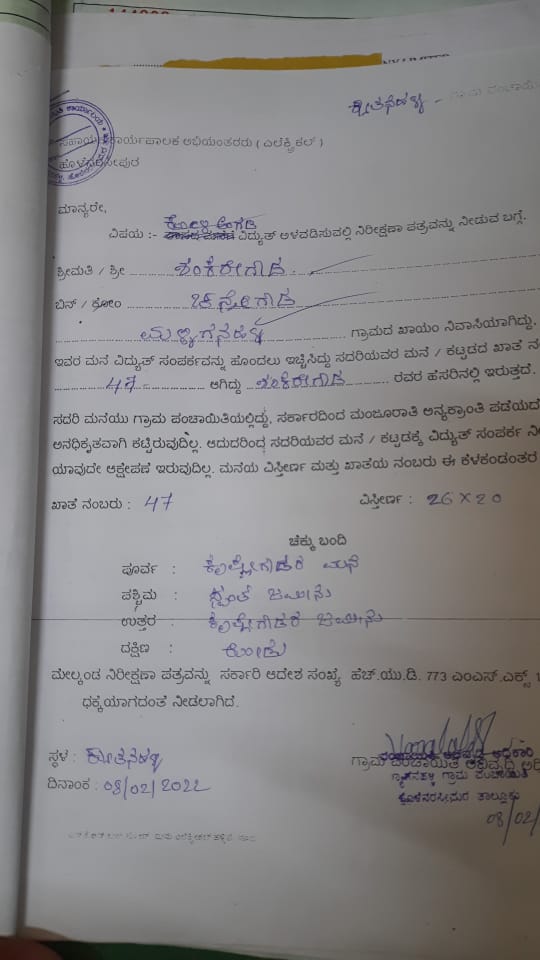 ಗ್ರಾಮ ಪಂಚಾಯ
ಸಹಾಯಕ ಕಾರ್ಯಪಾಲಕ ಅಭಿಯಂತರರು ( ಎಲೆಕ್ಟ್ರಿಕಲ್ )
ಹೊಳೆನರಸೀಪುರ
ಮಾನ್ಯರೇ,
ಕೋಳಿ ಅಂಗಡಿ
ವಿಷಯ :- ವಾಸದ ಮನೆಗೆ ವಿದ್ಯುತ್ ಅಳವಡಿಸುವಲ್ಲಿ ನಿರೀಕ್ಷಣಾ ಪತ್ರವನ್ನು ನೀಡುವ ಬಗ್ಗೆ.
ಶ್ರೀಮತಿ / ಶ್ರೀ ಶಂಕರೇಗೌಡ
ಬಿನ್ / ಕೋಂ
ಗ್ರಾಮದ ಖಾಯಂ ನಿವಾಸಿಯಾಗಿದ್ದು,
ಇವರ ಮನೆ ವಿದ್ಯುತ್ ಸಂಪರ್ಕವನ್ನು ಹೊಂದಲು ಇಚ್ಛಿಸಿದ್ದು ಸದರಿಯವರ ಮನೆ / ಕಟ್ಟಡದ ಖಾತೆ ನಂ
47 ಆಗಿದ್ದು ಶಂಕರೇಗೌಡ ರವರ ಹೆಸರಿನಲ್ಲಿ ಇರುತ್ತದೆ.
ಸದರಿ ಮನೆಯು ಗ್ರಾಮ ಪಂಚಾಯಿತಿಯಲ್ಲಿದ್ದು, ಸರ್ಕಾರದಿಂದ ಮಂಜೂರಾತಿ ಅನ್ಯಕ್ರಾಂತಿ ಪಡೆಯದೆ
ಅನಧಿಕೃತವಾಗಿ ಕಟ್ಟಿರುವುದಿಲ್ಲ. ಆದುದರಿಂದ ಸದರಿಯವರ ಮನೆ / ಕಟ್ಟಡಕ್ಕೆ ವಿದ್ಯುತ್ ಸಂಪರ್ಕ ನೀ
ಯಾವುದೇ ಆಕ್ಷೇಪಣೆ ಇರುವುದಿಲ್ಲ. ಮನೆಯ ವಿಸ್ತೀರ್ಣ ಮತ್ತು ಖಾತೆಯ ನಂಬರು ಈ ಕೆಳಕಂಡಂತರ
ಖಾತೆ ನಂಬರು : 47 ವಿಸ್ತೀರ್ಣ : 26 × 20
ಚೆಕ್ಕು ಬಂದಿ
ಪೂರ್ವ : ಮನೆ
ಪಶ್ಚಿಮ : ಸ್ವಂತ ಜಮೀನು
ಉತ್ತರ : ಜಮೀನು
ದಕ್ಷಿಣ :
ಮೇಲ್ಕಂಡ ನಿರೀಕ್ಷಣಾ ಪತ್ರವನ್ನು ಸರ್ಕಾರಿ ಆದೇಶ ಸಂಖ್ಯೆ ಹೆಚ್.ಯು.ಡಿ. 773 ಎಂಎಸ್.ಎಕ್ಸ್
ಧಕ್ಕೆಯಾಗದಂತೆ ನೀಡಲಾಗಿದೆ.
ಸ್ಥಳ :
ದಿನಾಂಕ : 08/02/2022
ಗ್ರಾಮ ಪಂಚಾಯಿತಿ ಅಭಿವೃದ್ಧಿ ಅಧಿ
ಗ್ರಾಮ ಪಂಚಾಯಿತಿ
ಹೊಳೆನರಸೀಪುರ ತಾಲ್ಲೂಕು
08/02/